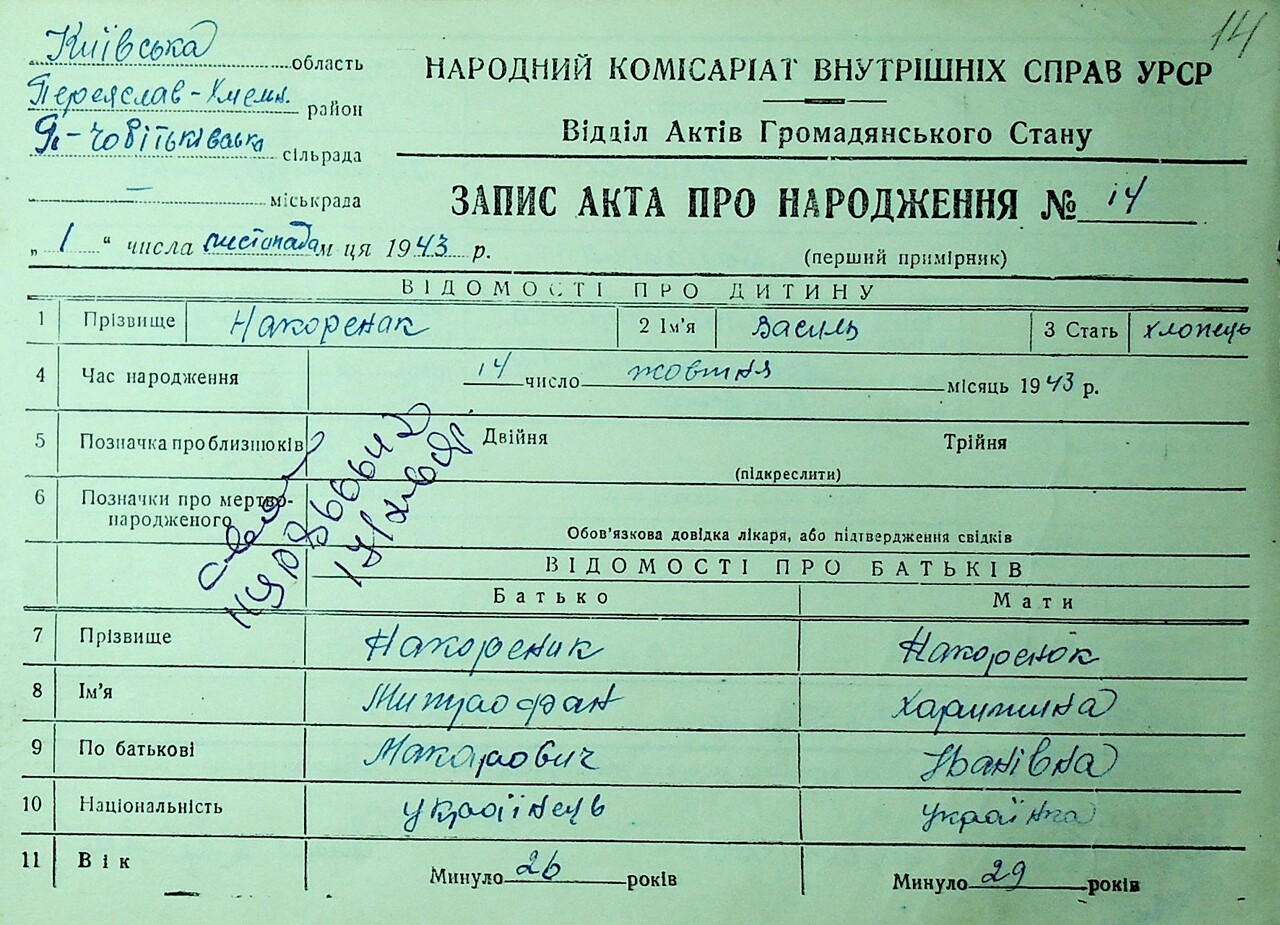 14
Київська область
Переяслав-Хмельн. район
сільрада
— міськрада
„ 1 “ числа листопада м ця 1943 р.
НАРОДНИЙ КОМІСАРІАТ ВНУТРІШНІХ СПРАВ УРСР
Відділ Актів Громадянського Стану
ЗАПИС АКТА ПРО НАРОДЖЕННЯ № 14
(перший примірняк)
ВІДОМОСТІ ПРО ДИТИНУ
1 Прізвище Накоренок 2 Ім'я Василь 3 Стать хлопець
4 Час народження 14 число жовтня місяць 1943 р.
5 Позначка про близнюків Двійня Трійня
(підкреслити)
6 Позначки про мертво-
народженого
Обов'язкова довідка лікаря, або підтвердження свідків
ВІДОМОСТІ ПРО БАТЬКІВ
Батько Мати
7 Прізвище Накореник Накоренок
8 Ім'я Митрофан Харитина
9 По батькові Макарович Іванівна
10 Національність українець українка
11 Вік Минуло 26 років Минуло 29 років